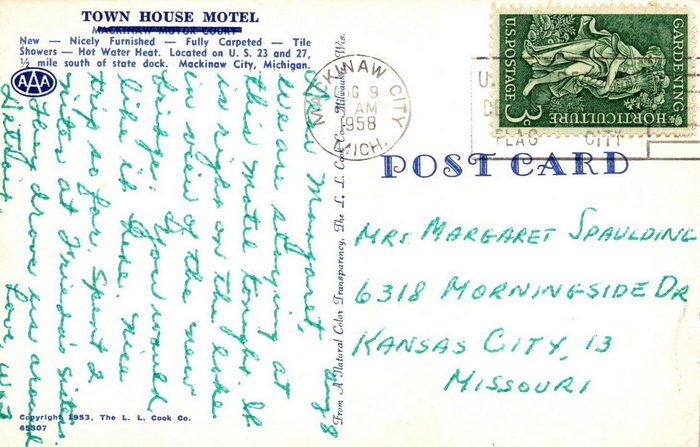 TOWN HOUSE MOTEL
MACKINAW MOTOR COURT
New — Nicely Furnished — Fully Carpeted — Tile
Showers — Hot Water Heat. Located on U. S. 23 and 27,
½ mile south of state dock. Mackinaw City, Michigan.
AAA
Aug 8
Dear Margaret,
We are staying at
this motel tonight. It
is right on the lake
in view of the new
bridge. You would
like it here. Nice
trip so far. Spent 2
nites at Frieda's sister.
They drove us around
Detroit. Love, W
Copyright 1953, The L. L. Cook Co.
65807
From A Natural Color Transparency, The L. L. Cook Co., Milwaukee, Wis.
MACKINAW CITY
AUG 9
AM
1958
MICH.
FLAG CITY
GARDENING
HORTICULTURE
U.S. POSTAGE
3¢
POST CARD
MRS MARGARET SPAULDING
6318 MORNINGSIDE DR
KANSAS CITY, 13
MISSOURI